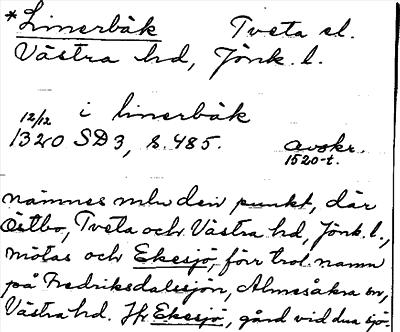 *Linerbäk Tveta sl.
Västra hd, Jönk. l.
12/12 i linerbäk
1320 SD3, s. 485. avskr.
1520-t.
nämnes mln den punkt, där
Östbo, Tveta och Västra hd, Jönk. l.,
mötas och Ekesjö, förr trol. namn
på Fredriksdalasjön, Almesåkra sn,
Västra hd. Jfr Ekesjö, gård vid dna sjö.